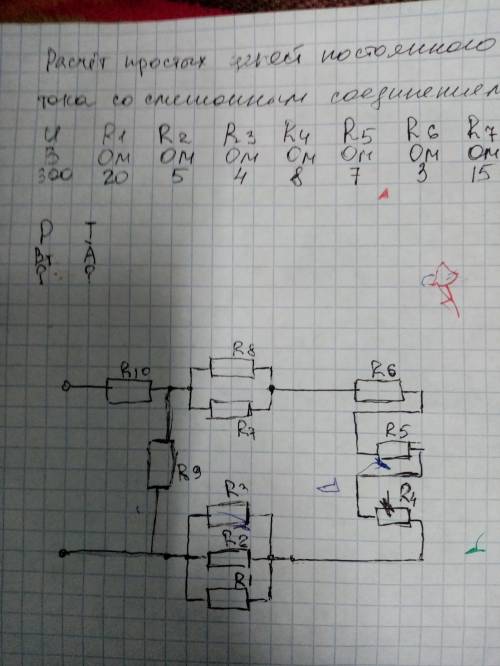 Расчёт простых цепей постоянного
тока со смешонным соединением
U R1 R2 R3 R4 R5 R6 R7
В Ом Ом Ом Ом Ом Ом Ом
300 20 5 4 8 7 3 15
P I
Вт А
? ?
R10
R8
R7
R6
R5
R4
R9
R3
R2
R1